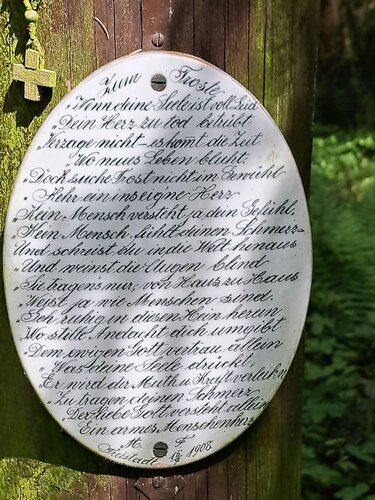 Zum Troste
„Wenn deine Seele ist voll Leid
„Dein Herz zu tod betrübt
„Verzage nicht – es komt die Zeit
„Wo neues Leben blüht.
„Doch suche Trost nicht im Gewühl
„Kehr ein ins eig'ne Herz
„Kein Mensch versteht ja dein Gefühl,
„Kein Mensch fühlt deinen Schmerz
„Und schreist du in die Welt hinaus
„Und weinst die Augen blind
„Sie tragens nur, von Haus zu Haus
„Weist ja wie Menschen sind.
Geh ruhig in diesen Hein herein
Wo stille Andacht dich umgibt
Dem ewigen Gott vertrau allein
Was deine Seele drückt.
Er wird dir Muth u. Kraft verleihn
Zu tragen deinen Schmerz
Der liebe Gott versteht allein
Ein armes Menschenherz
M. F.
1908